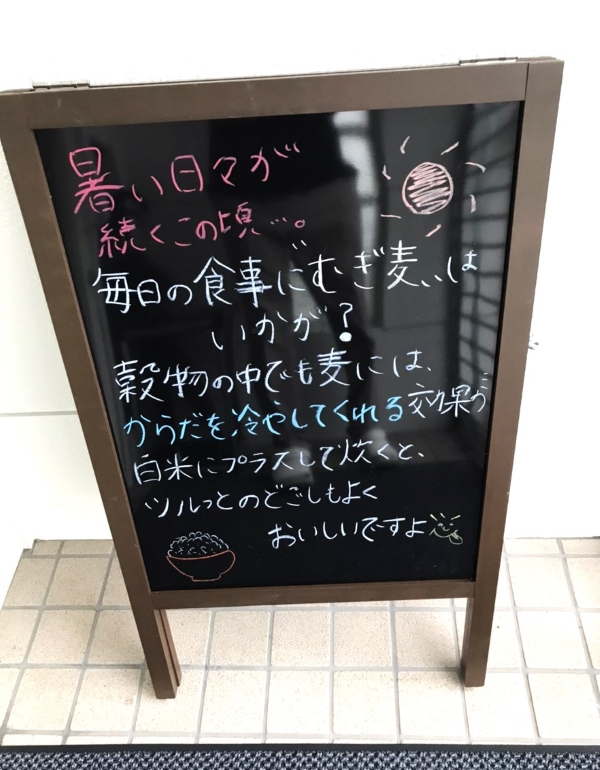 暑い日々が
続くこの頃…。
毎日の食事に〝むぎ麦〟は
いかが？
穀物の中でも麦には、
からだを冷やしてくれる効果が
白米にプラスして炊くと、
ツルっとのどごしもよく
おいしいですよ